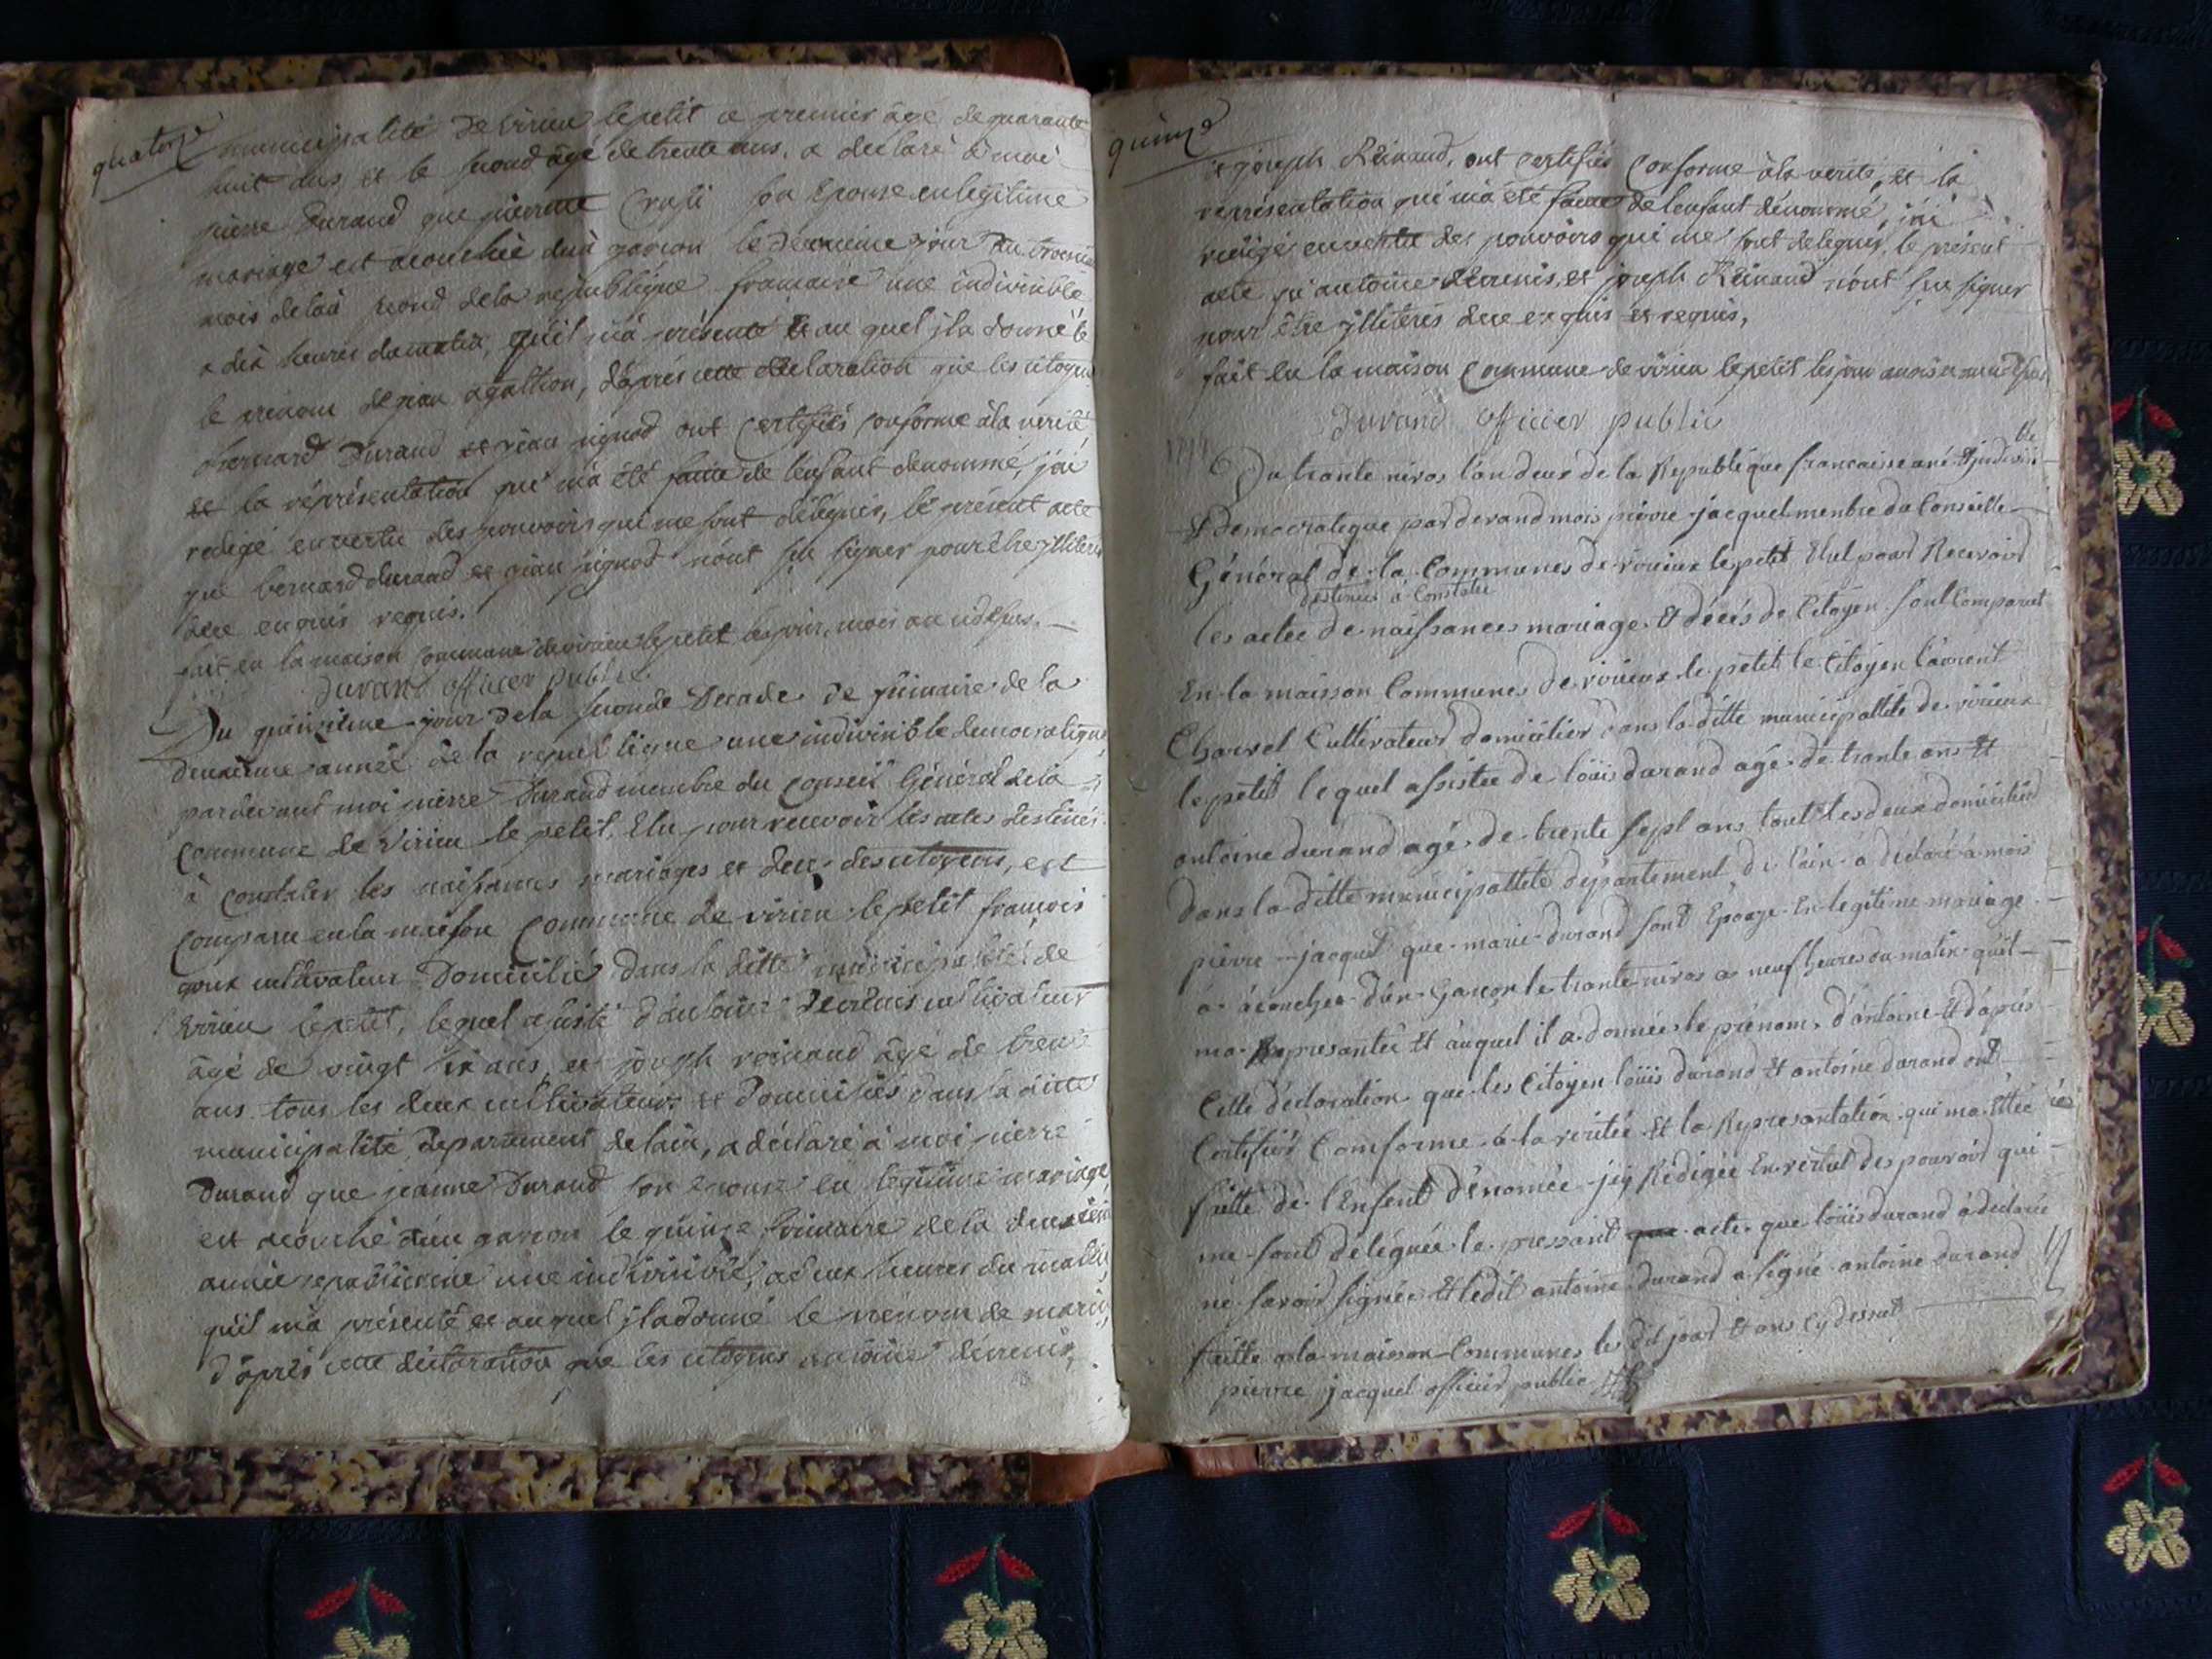 quatorze
municipalité de virieu lepetit ce premier âgé de quarante
huit ans, et le second âgé de trente ans, a declaré à moi
pierre Durand que pierrette son Epouse en legitime
mariage est acouchée d'un garcon le deuxieme jour du troisieme
mois de l'an second de la republique francaise une indivisible
a dix heures du matin, qu'il m'a présenté et au quel il a donné le
le prenom de jean agathon, d'apres cette declaration que les citoyens
bernard Durand et jean ont certifiés conforme à la verité
et la réprésentation qui m'a été faitte de l'enfant denommé, j'ai
redigé en vertu des pouvoirs qui me sont délégués, le présent acte
que bernard durand et jean n'ont su signer pour être illiteres
de ce enquis requis.
fait en la maison commune de virieu lepetit les jour, mois an susdit
Durand officier public
Du quinzieme jour de la seconde Decade de frimaire de la
deuxieme année de la republique une indivisible democratique
pardevant moi pierre Durand membre du conseil Général de la
commune de Virieu le petit, Elu pour recevoir les actes destinés
à constater les naissances mariages et deces des citoyens, est
comparu en la maison commune de virieu lepetit françois
goux cultivateur Domicilié dans la ditte municipalité de
virieu lepetit, lequel assisté d'antoine cultivateur
âgé de vingt six ans, et joseph reinaud âgé de trente
ans tous les deux cultivateurs et Domiciliés dans la ditte
municipalité, departement de lain, a déclaré à moi pierre
Durand que jeanne Durand son epouse en legitime mariage
est acouché d'un garcon le quinze frimaire de la deuxieme
année republicaine une indivisible, a deux heures du matin
qu'il m'a présenté et auquel il a donné le prenom de marin,
d'aprés cette déclaration que les citoyens antoine
quinze
et joseph Reinaud, ont certifiés conforme à la verité, et la
représentation qui m'a été faitte de l'enfant dénommé, j'ai
redigé en vertu des pouvoirs qui me sont delegués, le présent
acte qu'antoine et joseph Reinaud n'ont su signer
pour être illiterés de ce enquis et requis,
fait en la maison commune de virieu lepetit les jour mois an susdit
Durand officier public
1794
Du trante nivos l'an deux de la Republique francaisse une & indivisible
& democratique par devand mois pierre jacquet menbre du Conseille
Général de la Communes de virieux lepetit Elut pour Recevoird
destinee a Constatee
les actee de naissances mariage & décés de Citoyen sont Comparut
En la maisson Communes de virieux le petit le Citoyen laurent
Charvet Cultivateur domicilier dans la ditte municipallite de virieux
lepetit lequel assistee de louis durand agé de trante ans &
antoine durand agé de trente sept ans tout les deux domicilied
dans la ditte municipallité département de l'ain a déclaré a mois
pierre jacquet que marie durand sont Epouze En legitime mariage
a acouchee d'un Gaçon le trante nivos a neuf heures du matin quil
ma Represantée & auquel il a donnée le prénom d'antoine & d'aprés
Cette déclaration que les Citoyen louis durand & antoine durand ont
Certifiés Comforme a la veritée & la Represantation qui ma Ettée
faitte de l'Enfent dénomée jey Rédigée En vertut des pouvoird qui
me sont déléguée le pressant que acte que louis durand a déclaree
ne savoir signée & ledit antoine durand a signé antoine durand
faitte a la maisson Communes les dit jour & ans Cy dessut
pierre jacquet officier public